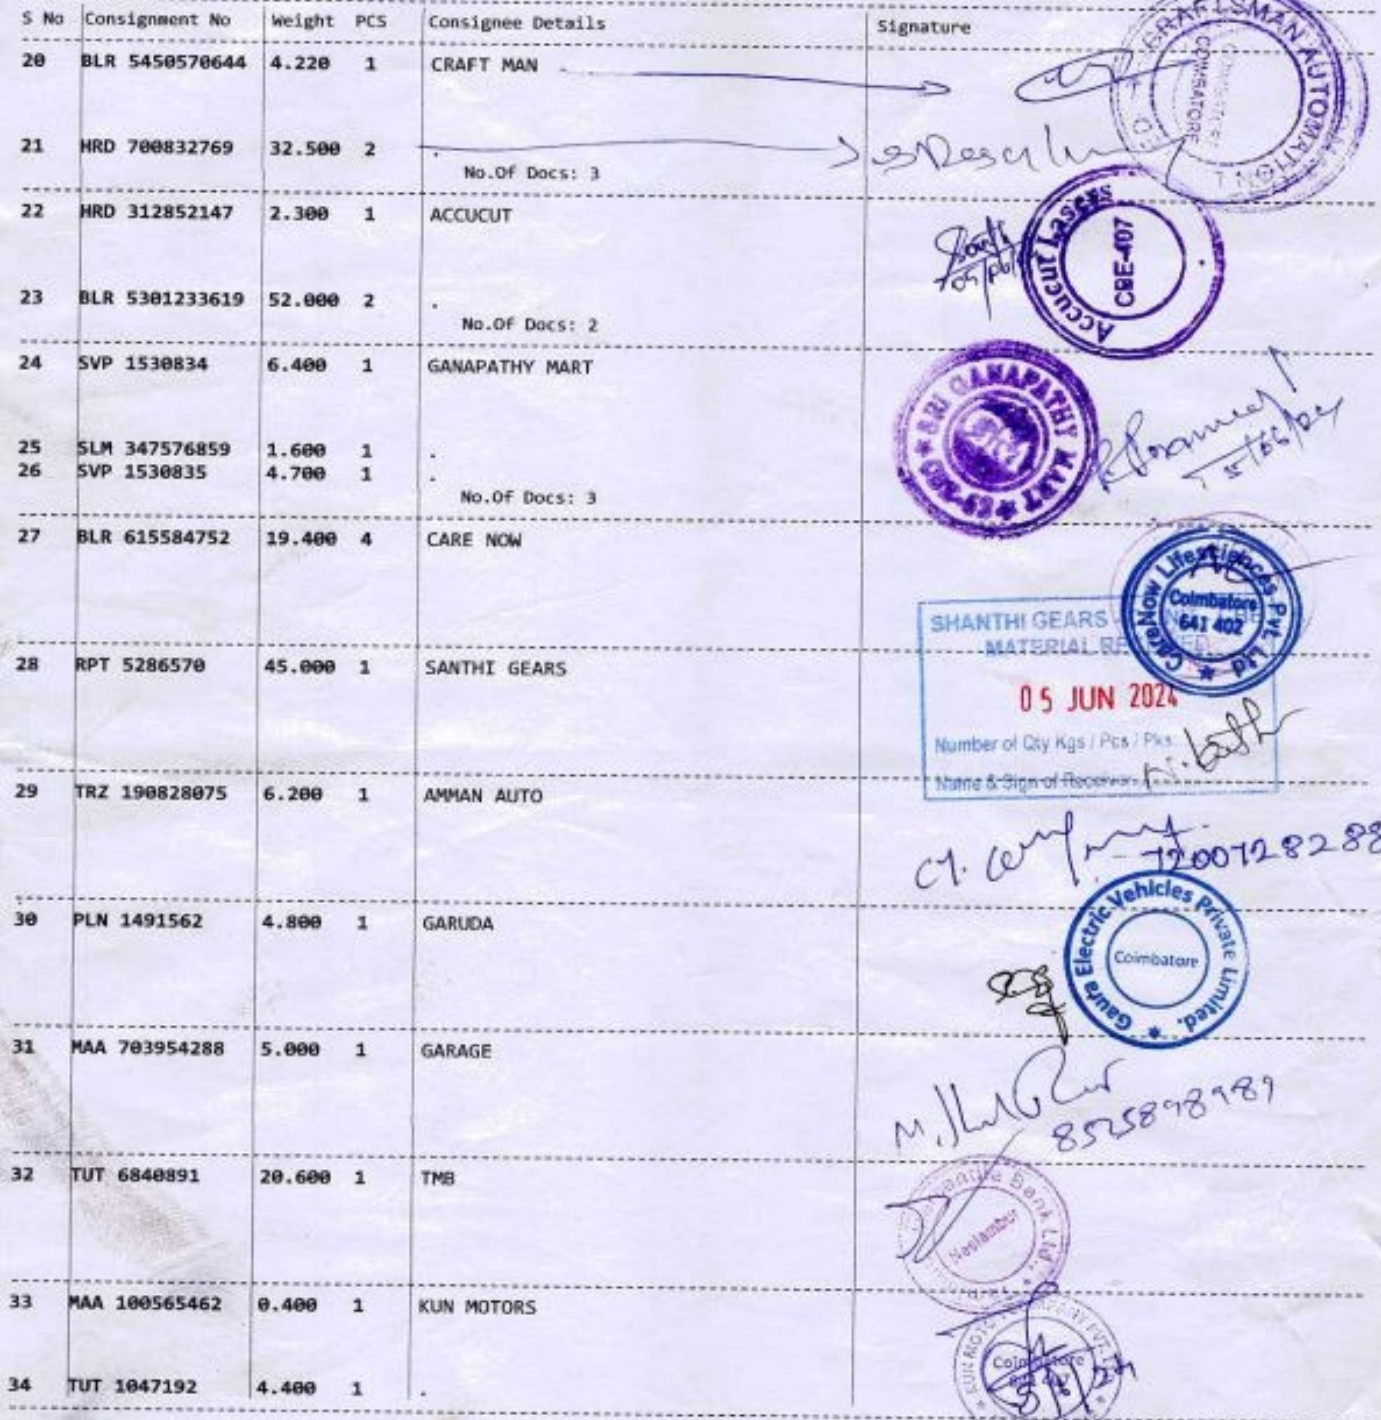 S No Consignment No Weight PCS Consignee Details Signature
20 BLR 5450570644 4.220 1 CRAFT MAN
CRAFTSMAN AUTOMATION
COIMBATORE
21 HRD 700832769 32.500 2 .
No.Of Docs: 3
22 HRD 312852147 2.300 1 ACCUCUT
Accucut Lasers
CBE-407
23 BLR 5301233619 52.000 2 .
No.Of Docs: 2
24 SVP 1530834 6.400 1 GANAPATHY MART
SRI GANAPATHY MART
25 SLM 347576859 1.600 1 .
26 SVP 1530835 4.700 1 .
No.Of Docs: 3
27 BLR 615584752 19.400 4 CARE NOW
Care Now Lifesciences Pvt. Ltd
Coimbatore
641 402
SHANTHI GEARS
MATERIAL
28 RPT 5286570 45.000 1 SANTHI GEARS
05 JUN 2024
Number of Qty Kgs / Pcs / Pks:
Name & Sign of Receiver
29 TRZ 190828075 6.200 1 AMMAN AUTO
7200728288
30 PLN 1491562 4.800 1 GARUDA
Gaura Electric Vehicles Private Limited.
Coimbatore
31 MAA 703954288 5.000 1 GARAGE
8525898989
32 TUT 6840891 20.600 1 TMB
Bank Ltd.
33 MAA 100565462 0.400 1 KUN MOTORS
KUN MOTO
Coimbatore
34 TUT 1047192 4.400 1 .